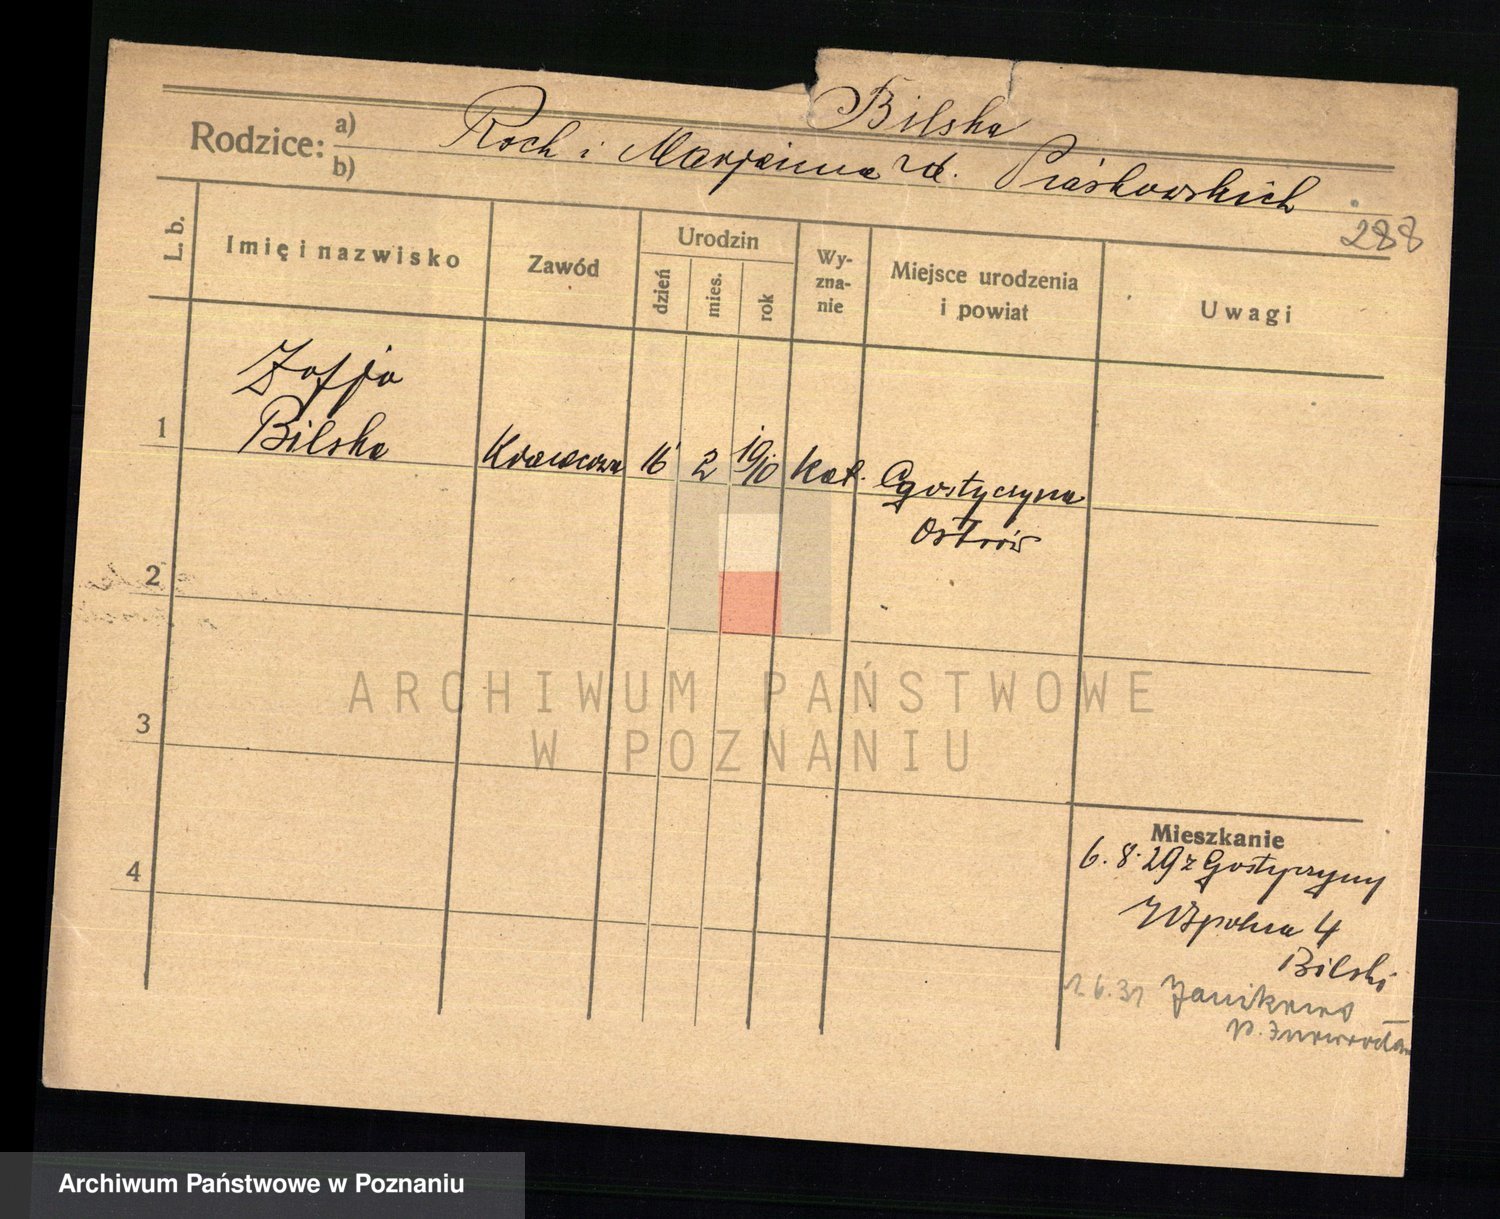 Bilska
Rodzice: a) b)
Roch i Marjanna zd. Piaskowskich
288
L. b.
Imię i nazwisko
Zawód
Urodzin
dzień
mies.
rok
Wy-
zna-
nie
Miejsce urodzenia
i powiat
Uwagi
Zofja
1 Bilska Krawcowa 16 2 1910 kat. Gostyczyna
Ostrów
2
3
ARCHIWUM PAŃSTWOWE
W POZNANIU
4
Mieszkanie
6.8.29 z Gostyczyny
Wspólna 4
Bilski
6.31 Janikowo
p. Inowrocław
Archiwum Państwowe w Poznaniu